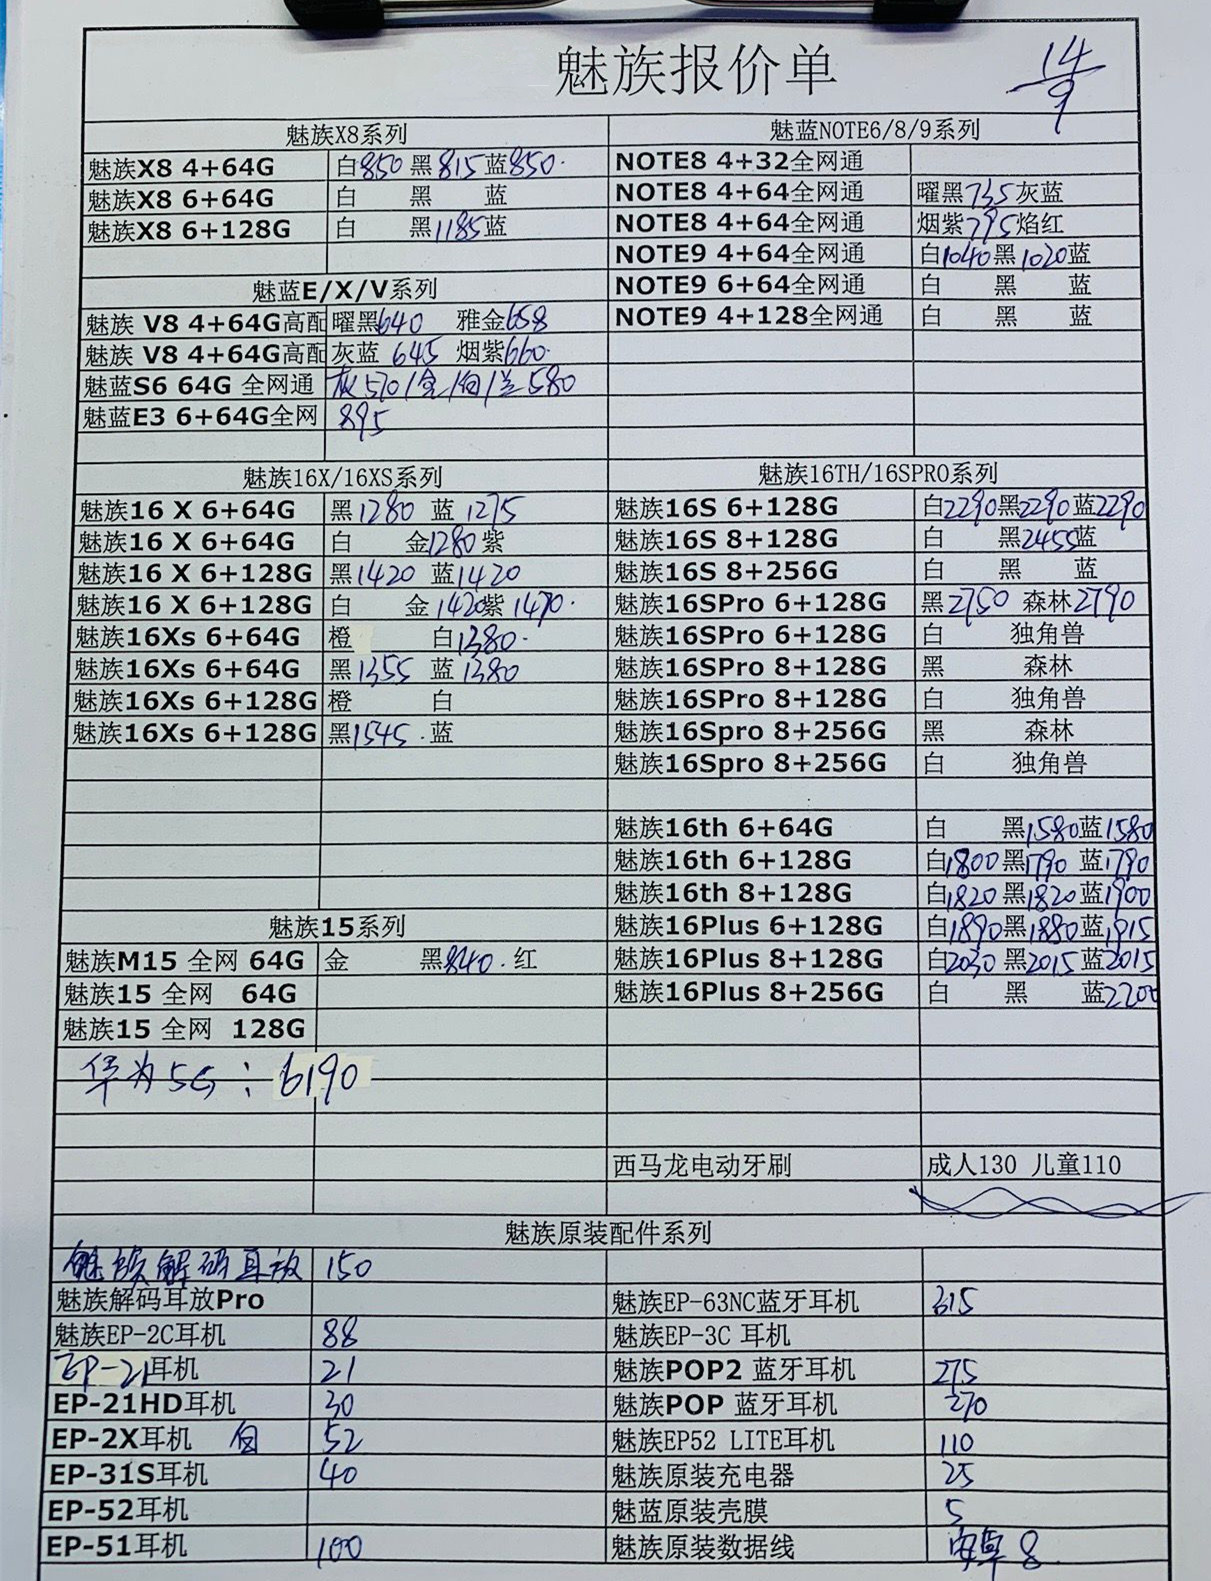 魅族报价单
14/9
魅族X8系列 魅蓝NOTE6/8/9系列
魅族X8 4+64G 白850 黑815 蓝850 NOTE8 4+32全网通
魅族X8 6+64G 白 黑 蓝 NOTE8 4+64全网通 曜黑735 灰蓝
魅族X8 6+128G 白 黑1185 蓝 NOTE8 4+64全网通 烟紫795 焰红
NOTE9 4+64全网通 白1040 黑1020 蓝
魅蓝E/X/V系列 NOTE9 6+64全网通 白 黑 蓝
魅族 V8 4+64G高配 曜黑640 雅金658 NOTE9 4+128全网通 白 黑 蓝
魅族 V8 4+64G高配 灰蓝 645 烟紫660
魅蓝S6 64G 全网通 灰570/金/白/兰580
魅蓝E3 6+64G全网 895
魅族16X/16XS系列 魅族16TH/16SPRO系列
魅族16 X 6+64G 黑1280 蓝 1275 魅族16S 6+128G 白2290 黑2290 蓝2290
魅族16 X 6+64G 白 金1280 紫 魅族16S 8+128G 白 黑2455 蓝
魅族16 X 6+128G 黑1420 蓝1420 魅族16S 8+256G 白 黑 蓝
魅族16 X 6+128G 白 金1420 紫 1470 魅族16SPro 6+128G 黑2750 森林2790
魅族16Xs 6+64G 橙 白1380 魅族16SPro 6+128G 白 独角兽
魅族16Xs 6+64G 黑1355 蓝1380 魅族16SPro 8+128G 黑 森林
魅族16Xs 6+128G 橙 白 魅族16SPro 8+128G 白 独角兽
魅族16Xs 6+128G 黑1545 蓝 魅族16Spro 8+256G 黑 森林
魅族16Spro 8+256G 白 独角兽
魅族16th 6+64G 白 黑1580 蓝1580
魅族16th 6+128G 白1800 黑1790 蓝1790
魅族16th 8+128G 白1820 黑1820 蓝1900
魅族15系列 魅族16Plus 6+128G 白1890 黑1880 蓝1915
魅族M15 全网 64G 金 黑840 红 魅族16Plus 8+128G 白2030 黑2015 蓝2015
魅族15 全网 64G 魅族16Plus 8+256G 白 黑 蓝2200
魅族15 全网 128G
华为5G：6190
西马龙电动牙刷 成人130 儿童110
魅族原装配件系列
魅族解码耳放 150
魅族解码耳放Pro 魅族EP-63NC蓝牙耳机 315
魅族EP-2C耳机 88 魅族EP-3C 耳机
EP-21耳机 21 魅族POP2 蓝牙耳机 275
EP-21HD耳机 30 魅族POP 蓝牙耳机 270
EP-2X耳机 白 52 魅族EP52 LITE耳机 110
EP-31S耳机 40 魅族原装充电器 25
EP-52耳机 魅蓝原装壳膜 5
EP-51耳机 100 魅族原装数据线 安卓 8